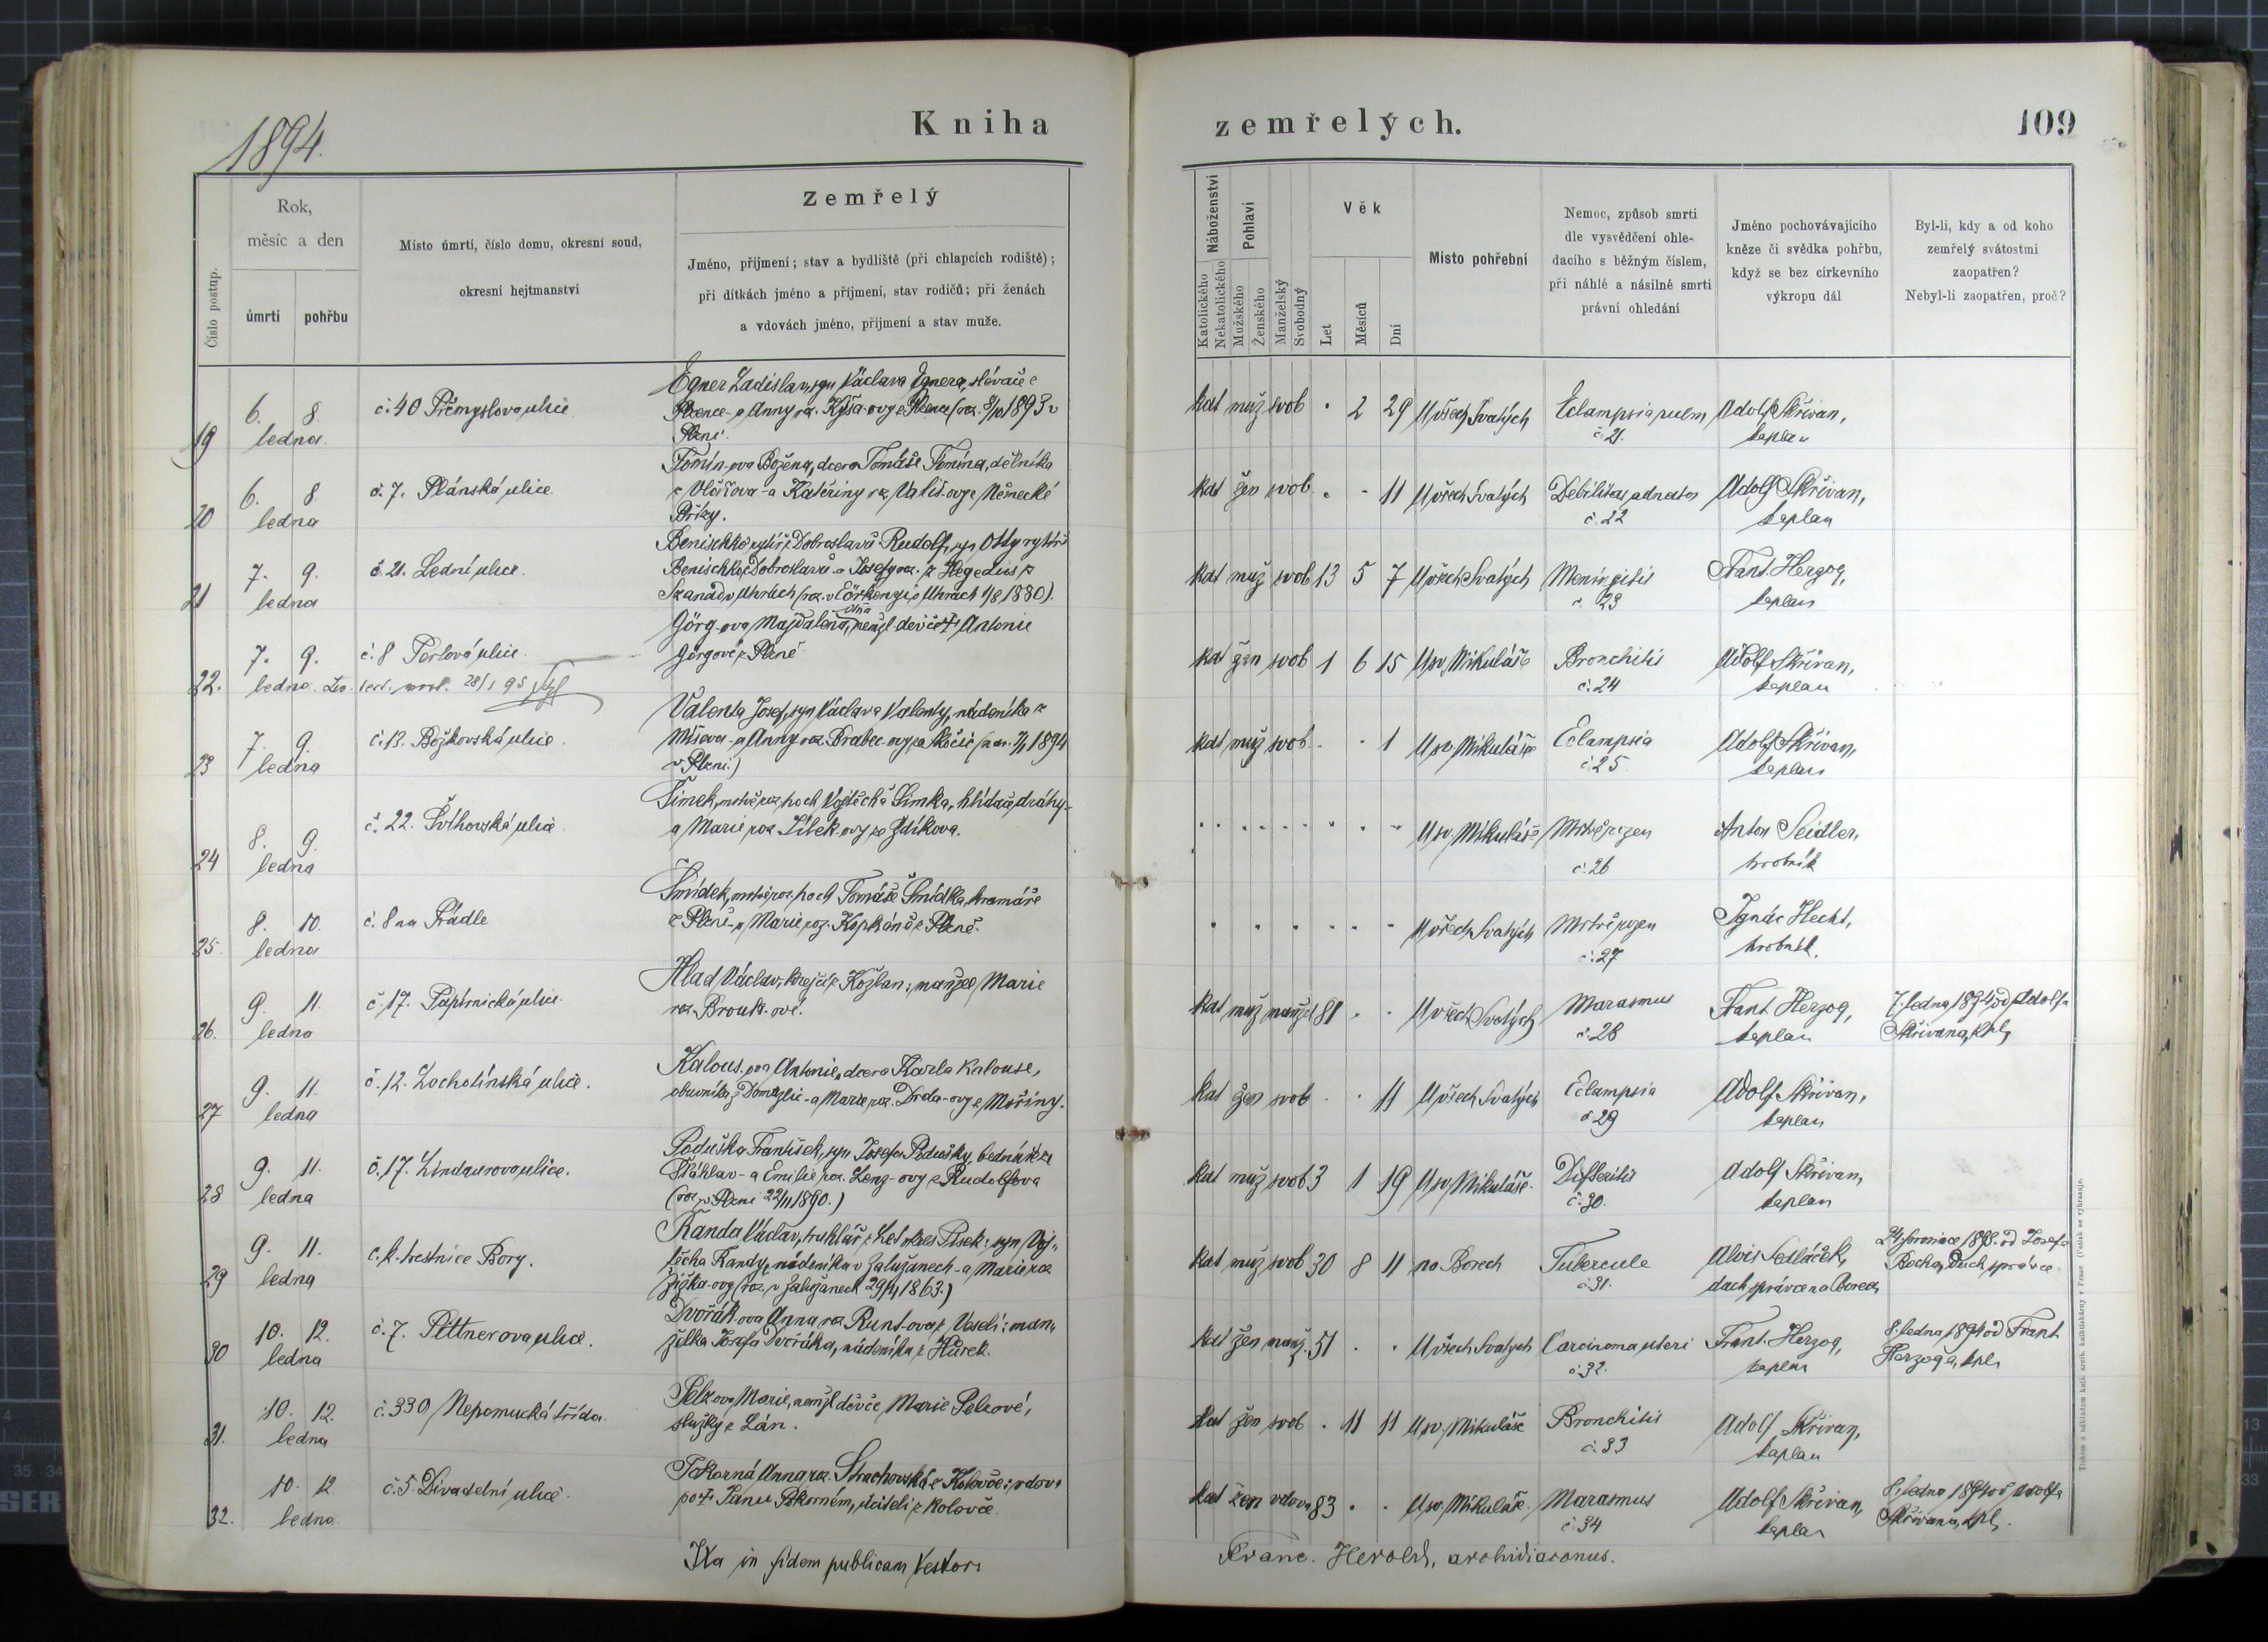 1894.
Kniha zemřelých. 109
Číslo postup.
Rok, měsíc a den
úmrtí pohřbu
Místo úmrtí, číslo domu, okresní soud, okresní hejtmanství
Zemřelý
Jméno, příjmení; stav a bydliště (při chlapcích rodiště);
při dítkách jméno a příjmení, stav rodičů; při ženách
a vdovách jméno, příjmení a stav muže.
Náboženství
Katolického
Nekatolického
Pohlaví
Mužského
Ženského
Manželský
Svobodný
Věk
Let
Měsíců
Dní
Místo pohřební
Nemoc, způsob smrti
dle vysvědčení ohle-
dacího s běžným číslem,
při náhlé a násilné smrti
právní ohledání
Jméno pochovávajícího
kněze či svědka pohřbu,
když se bez církevního
výkropu dál
Byl-li, kdy a od koho
zemřelý svátostmi
zaopatřen?
Nebyl-li zaopatřen, proč?
19 6. 8. ledna č. 40 Přemyslova ulice
Egner Ladislav, syn Václava Egnera, slévače z
Plzně - a Anny roz. Kýša-ovy z Plzně (roz. 8/10 1893 v
Plzni.
kat muž svob . 2 29 U všech Svatých Eclampsia pulm č. 21. Adolf Skřivan, kaplan
20 6. 8 ledna č. 7. Plánská ulice
Tomín-ova Božena, dcera Tomáše Tomína, dělníka
z Vlčkova - a Kateřiny roz. Vališ-ovy z Německé
Břízy.
kat žen svob . - 11 U všech Svatých Debilitas adnatos č. 22 Adolf Skřivan, kaplan
21 7. 9. ledna č. 21. Lední ulice.
Benischko rytíř z Dobroslavů Rudolf, syn Otty rytíře
Benischko z Dobroslavů - a Josefy roz. z Hegedüs z
Szanád v Uhrách (roz. v Eörkengi v Uhrách 1/8 1880).
kat muž svob 13 5 7 U všech Svatých Meningitis č. 23 Frant. Herzog, kaplan
22. 7. 9. ledna. č. 8 Perlová ulice
28/1 95
Görg-ova Majdalena, nemžl. děvče † Antonie
Görgové z Plzně
kat žen svob 1 6 15 U sv. Mikuláše Bronchitis č. 24 Adolf Skřivan, kaplan
23 7. 9. ledna č. 13. Božkovská ulice.
Valenta Josef, syn Václava Valenty, nádeníka z
Mísova - a Anny roz. Brabec-ovy ze Skočic (nar. 7/1 1894
v Plzni.)
kat muž svob . . 1 U sv. Mikuláše Eclampsia č. 25 Adolf Skřivan, kaplan
24 8. 9. ledna č. 22. Švihovská ulice
Šimek, mrtvě roz. hoch Vojtěcha Šimka, hlídače dráhy-
a Marie roz. Lítek-ovy ze Zdíkova.
U sv. Mikuláše Mrtvě rozen č. 26 Anton Seidler, hrobník
25. 8. 10. ledna č. 8 na Prádle
Šmídek, mrtvě roz. hoch Tomáše Šmídka, kramáře
z Plzně - a Marie roz. Kopkáně z Plzně.
U všech Svatých Mrtvě rozen č. 27 Ignác Hecht, hrobník.
26. 9. 11. ledna č. 17. Papírnická ulice.
Hlad Václav, krejčí z Kožlan; manžel Marie
roz. Brouk-ové.
kat muž manžel 81 . . U všech Svatých Marasmus č. 28 Frant. Herzog, kaplan
7. ledna 1894 od Adolfa
Skřivana, kpl,
27 9. 11. ledna č. 12. Lochotínská ulice.
Kalous-ova Antonie, dcera Karla Kalouse,
obuvníka z Domažlic - a Marie roz. Drda-ovy z Mořiny.
kat žen svob . . 11 U všech Svatých Eclampsia č 29 Adolf Skřivan, kaplan
28 9. 11. ledna č. 17. Lindaurova ulice.
Poduška František, syn Josefa Podušky, bednáře ze
Šťáhlav - a Emilie roz. Lenz-ovy z Rudolfova
(roz. v Plzni 22/11 1890.)
kat muž svob 3 1 19 U sv. Mikuláše. Difteritis č. 30. Adolf Skřivan, kaplan
29 9. 11. ledna c. k. trestnice Bory.
Randa Václav, truhlář z Let okres Písek; syn Voj-
těcha Randy, nádeníka v Zalužanech - a Marie roz.
Žižka-ovy (roz. v Zalužanech 29/4 1863.)
kat muž svob 30 8 11 na Borech Tubercule č. 31. Alois Sedláček, duch. správce na Borech
24 prosince 1893. od Josefa
duch. správce
30 10. 12. ledna č. 7. Pittnerova ulice.
Dvořák-ova Anna roz. Runt-ova z Veselí; man-
želka Josefa Dvořáka, nádeníka z Hůrek.
kat žen manž. 51 . . U všech Svatých Carcinoma uteri č. 32. Frant. Herzog, kaplan
8. ledna 1894 od Frant.
Herzoga, kpl,
31. 10. 12. ledna č. 330 Nepomucká třída.
Pelz ova Marie, nemžl. děvče Marie Pelzové,
služky z Lán.
kat žen svob . 11 11 U sv. Mikuláše Bronchitis č. 33 Adolf Skřivan, kaplan
32. 10. 12. ledna č. 5 Divadelní ulice.
Pokorná Anna roz. Strachovská z Kolovče; vdova
po † Janu Pokorném, učiteli z Kolovče.
kat žen vdova 83 . . U sv. Mikuláše. Marasmus č. 34 Adolf Skřivan, kaplan
8. ledna 1894 od Adolfa
Skřivana, kpl,
Ita in fidem publicam testor:
Franc. Herold, archidiaconus.